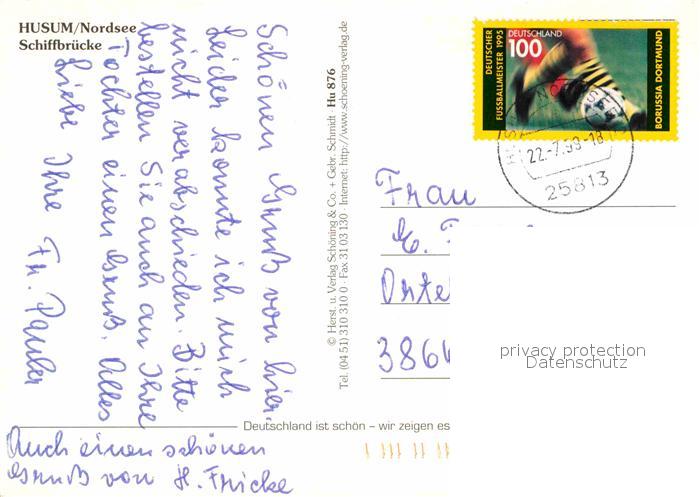 HUSUM/Nordsee
Schiffbrücke
Schönen Gruß von hier.
Leider konnte ich mich
nicht verabschieden. Bitte
bestellen Sie auch an Ihre
Tochter einen Gruß. Alles
Liebe Ihre Fr. Pauler
Auch einen schönen
Gruß von H. Fricke
© Herst. u. Verlag Schöning & Co. + Gebr. Schmidt Hu 876
Tel. (04 51) 310 310 0 · Fax 31 03 130 · Internet: http://www.schoening-verlag.de
Deutschland ist schön – wir zeigen es
DEUTSCHER
FUSSBALLMEISTER 1995
DEUTSCHLAND
100
BORUSSIA DORTMUND
22.-7.99-18
25813
Frau
Orte
3864
privacy protection
Datenschutz